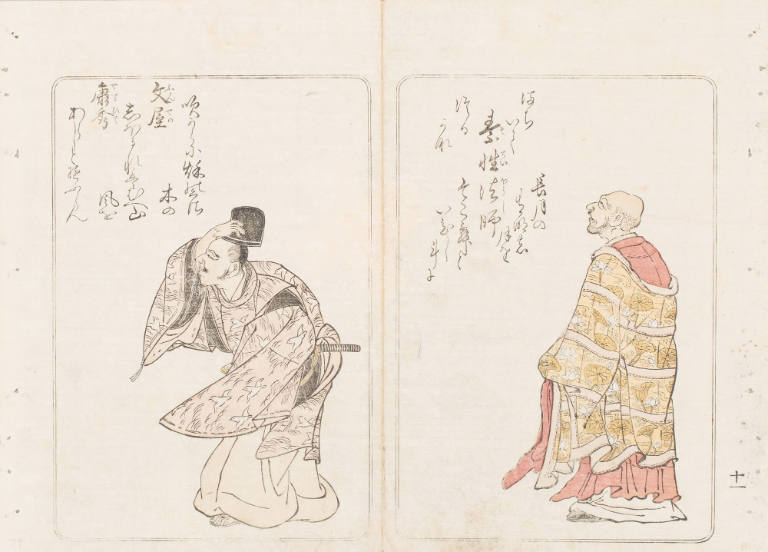 長月の
有明の
月を
まち
いて
素性法師
つる
かな
今こむと
いひし
吹からに秋の草
木の
文屋
しほるれはむへ山
風を
康秀
あらしといふらん
十一